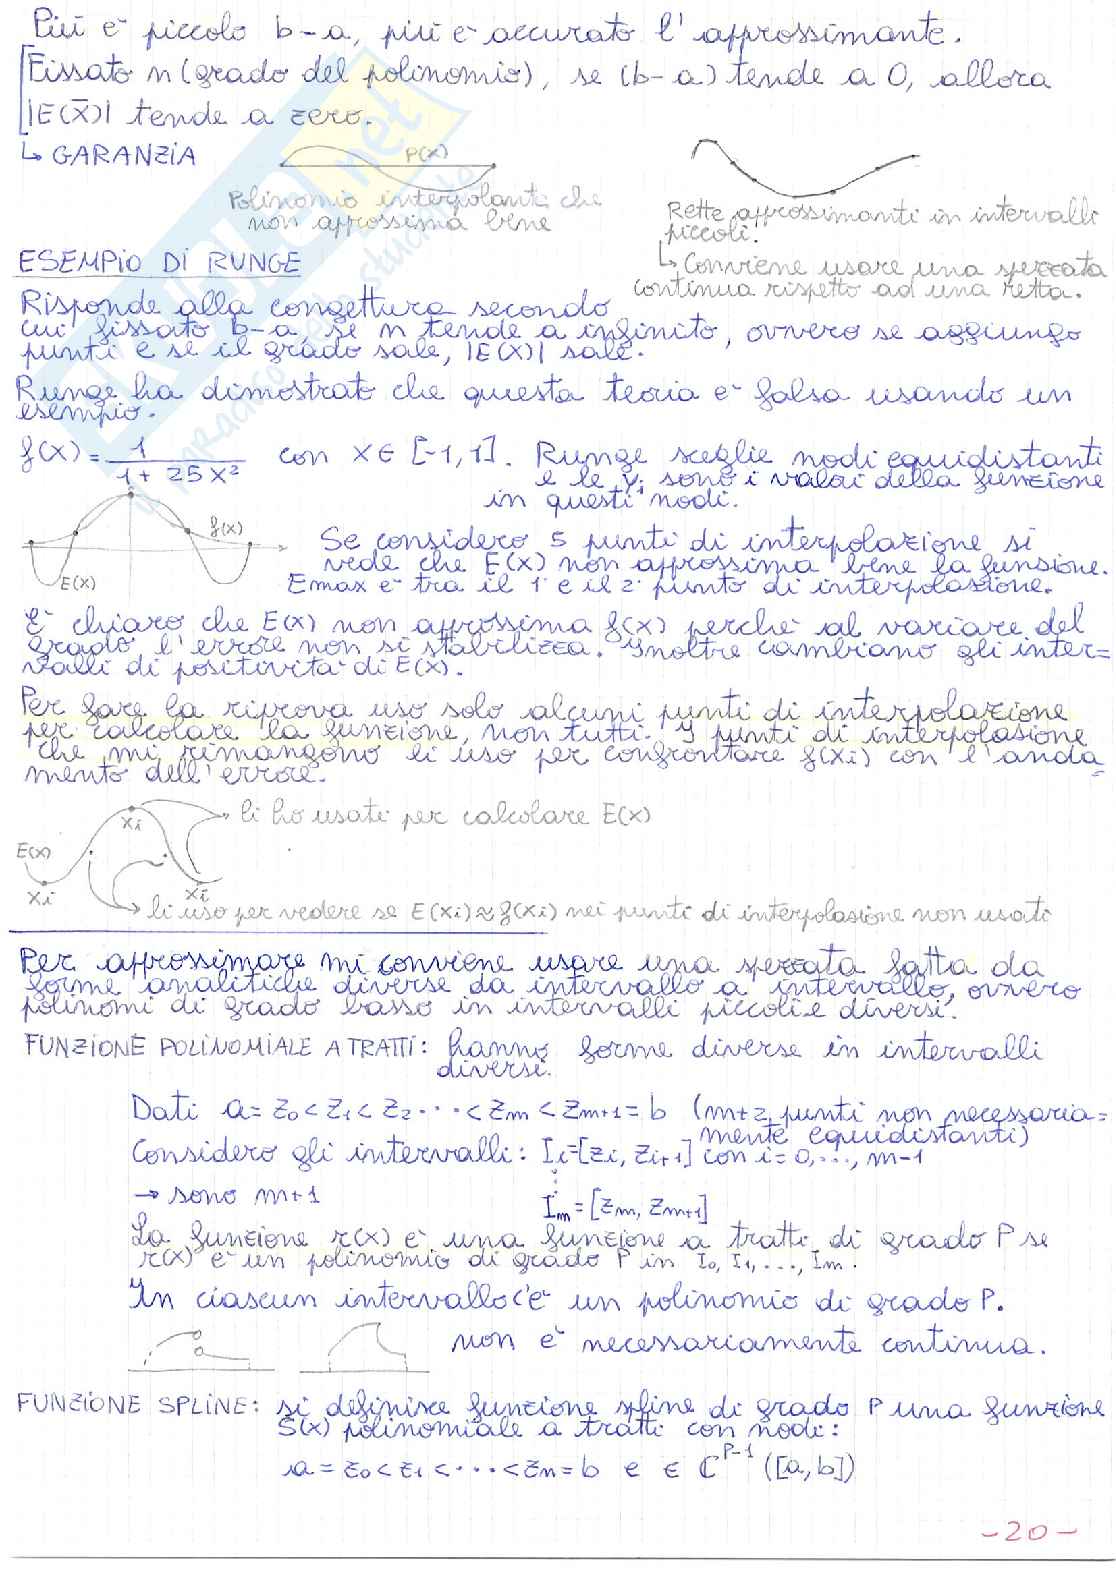 Più è piccolo b-a, più è accurato l'approssimante.
Fissato n (grado del polinomio), se (b-a) tende a 0, allora
|E(x̄)| tende a zero.
↳ GARANZIA
P(x)
Polinomio interpolante che
non approssima bene
Rette approssimanti in intervalli
piccoli.
↳ Conviene usare una spezzata
continua rispetto ad una retta.
ESEMPIO DI RUNGE
Risponde alla congettura secondo
cui, fissato b-a, se n tende a infinito, ovvero se aggiungo
punti e se il grado sale, |E(x)| sale.
Runge ha dimostrato che questa teoria è falsa usando un
esempio.
f(x) = 1/(1+25x²) con x ∈ [-1,1]. Runge sceglie nodi equidistanti
e le yi sono i valori della funzione
in questi nodi.
f(x)
E(x)
Se considero 5 punti di interpolazione si
vede che E(x) non approssima bene la funsione.
Emax è tra il 1° e il 2° punto di interpolasione.
E' chiaro che E(x) non approssima f(x) perchè al variare del
grado l'errore non si stabilizza. Inoltre cambiano gli inter=
valli di positività di E(x).
Per fare la riprova uso solo alcuni punti di interpolazione
per calcolare la funzione, non tutti. I punti di interpolasione
che mi rimangono li uso per confrontare f(xi) con l'anda=
mento dell'errore.
li ho usati per calcolare E(x)
E(x)
xi
xi
xi
li uso per vedere se E(xi)≈f(xi) nei punti di interpolasione non usati
Per approssimare mi conviene usare una spezzata fatta da
forme analitiche diverse da intervallo a intervallo, ovvero
polinomi di grado basso in intervalli piccoli e diversi.
FUNZIONE POLINOMIALE A TRATTI: hanno forme diverse in intervalli
diversi.
Dati a = z0 < z1 < z2 ... < zm < zm+1 = b (m+2 punti non necessaria=
mente equidistanti)
Considero gli intervalli: Ii=[zi, zi+1] con i=0,..., m-1
→ sono m+1
Im = [zm, zm+1]
La funzione r(x) è una funzione a tratti di grado P se
r(x) è un polinomio di grado P in I0, I1, ..., Im.
In ciascun intervallo c'è un polinomio di grado P.
non è necessariamente continua.
FUNZIONE SPLINE: si definisce funzione spline di grado P una funzione
S(x) polinomiale a tratti con nodi:
a = z0 < z1 < ... < zn = b e ∈ C^P-1 ([a,b])
-20-